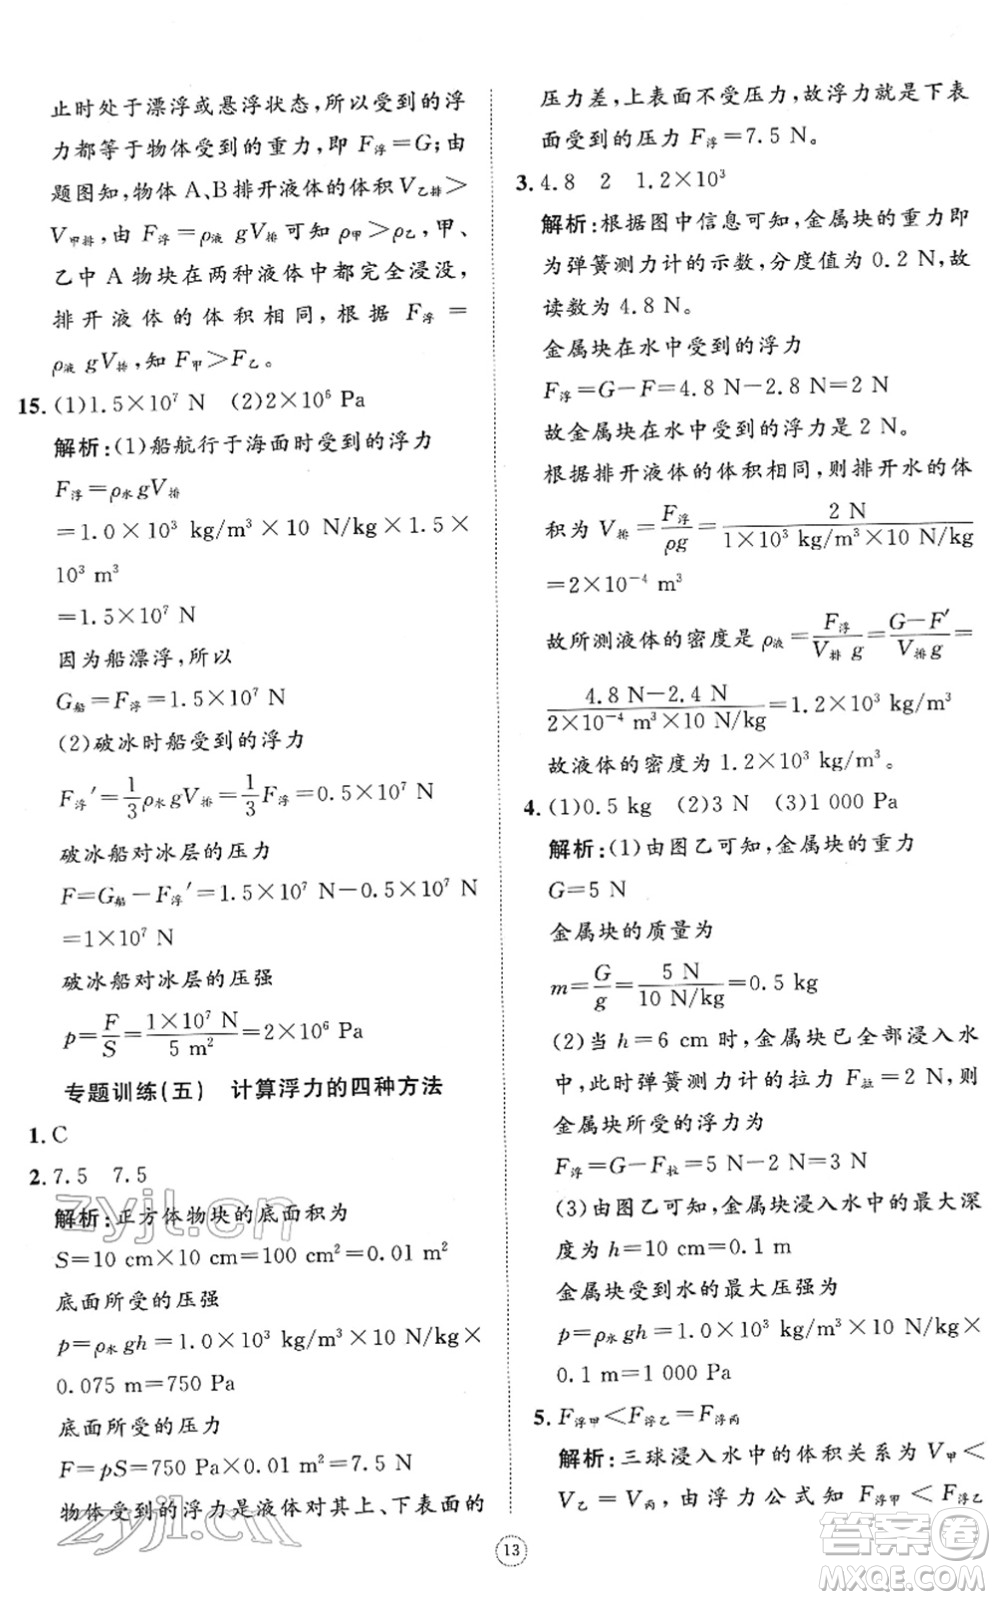 止时处于漂浮或悬浮状态,所以受到的浮
力都等于物体受到的重力,即 F浮=G;由
题图知,物体 A、B排开液体的体积V乙排>
V甲排,由 F浮=ρ液 gV排可知 ρ甲>ρ乙,甲、
乙中 A 物块在两种液体中都完全浸没,
排开液体的体积相同,根据 F浮=
ρ液 gV排,知 F甲>F乙。
15. (1)1.5×10⁷ N (2)2×10⁶ Pa
解析:(1)船航行于海面时受到的浮力
F浮=ρ水gV排
=1.0×10³ kg/m³×10 N/kg×1.5×
10³ m³
=1.5×10⁷ N
因为船漂浮,所以
G船=F浮=1.5×10⁷ N
(2)破冰时船受到的浮力
F浮′=1/3ρ水gV排=1/3F浮=0.5×10⁷ N
破冰船对冰层的压力
F=G船-F浮′=1.5×10⁷ N-0.5×10⁷ N
=1×10⁷ N
破冰船对冰层的压强
p=F/S=1×10⁷ N/5 m²=2×10⁶ Pa
专题训练(五) 计算浮力的四种方法
1. C
2. 7.5 7.5
解析:正方体物块的底面积为
S=10 cm×10 cm=100 cm²=0.01 m²
底面所受的压强
p=ρ水gh=1.0×10³ kg/m³×10 N/kg×
0.075 m=750 Pa
底面所受的压力
F=pS=750 Pa×0.01 m²=7.5 N
物体受到的浮力是液体对其上、下表面的
压力差,上表面不受压力,故浮力就是下表
面受到的压力 F浮=7.5 N。
3. 4.8 2 1.2×10³
解析:根据图中信息可知,金属块的重力即
为弹簧测力计的示数,分度值为 0.2 N,故
读数为 4.8 N。
金属块在水中受到的浮力
F浮=G-F=4.8 N-2.8 N=2 N
故金属块在水中受到的浮力为 2 N。
根据排开液体的体积相同,则排开水的体
积为 V排=F浮/ρg=2 N/1×10³ kg/m³×10 N/kg
=2×10⁻⁴ m³
故所测液体的密度是 ρ液=F浮/V排 g=G-F′/V排g=
4.8 N-2.4 N/2×10⁻⁴ m³×10 N/kg=1.2×10³ kg/m³
故液体的密度为 1.2×10³ kg/m³。
4. (1)0.5 kg (2)3 N (3)1 000 Pa
解析:(1)由图乙可知,金属块的重力
G=5 N
金属块的质量为
m=G/g=5 N/10 N/kg=0.5 kg
(2)当 h=6 cm 时,金属块已全部浸入水
中,此时弹簧测力计的拉力 F拉=2 N,则
金属块所受的浮力为
F浮=G-F拉=5 N-2 N=3 N
(3)由图乙可知,金属块浸入水中的最大深
度为 h=10 cm=0.1 m
金属块受到水的最大压强为
p=ρ水gh=1.0×10³ kg/m³×10 N/kg×
0.1 m=1 000 Pa
5. F浮甲<F浮乙=F浮丙
解析:三球浸入水中的体积关系为 V甲<
V乙=V丙,由浮力公式知 F浮甲<F浮乙
13
zyjl.cn
zyjl.cn
答案圈
MXQE.COM